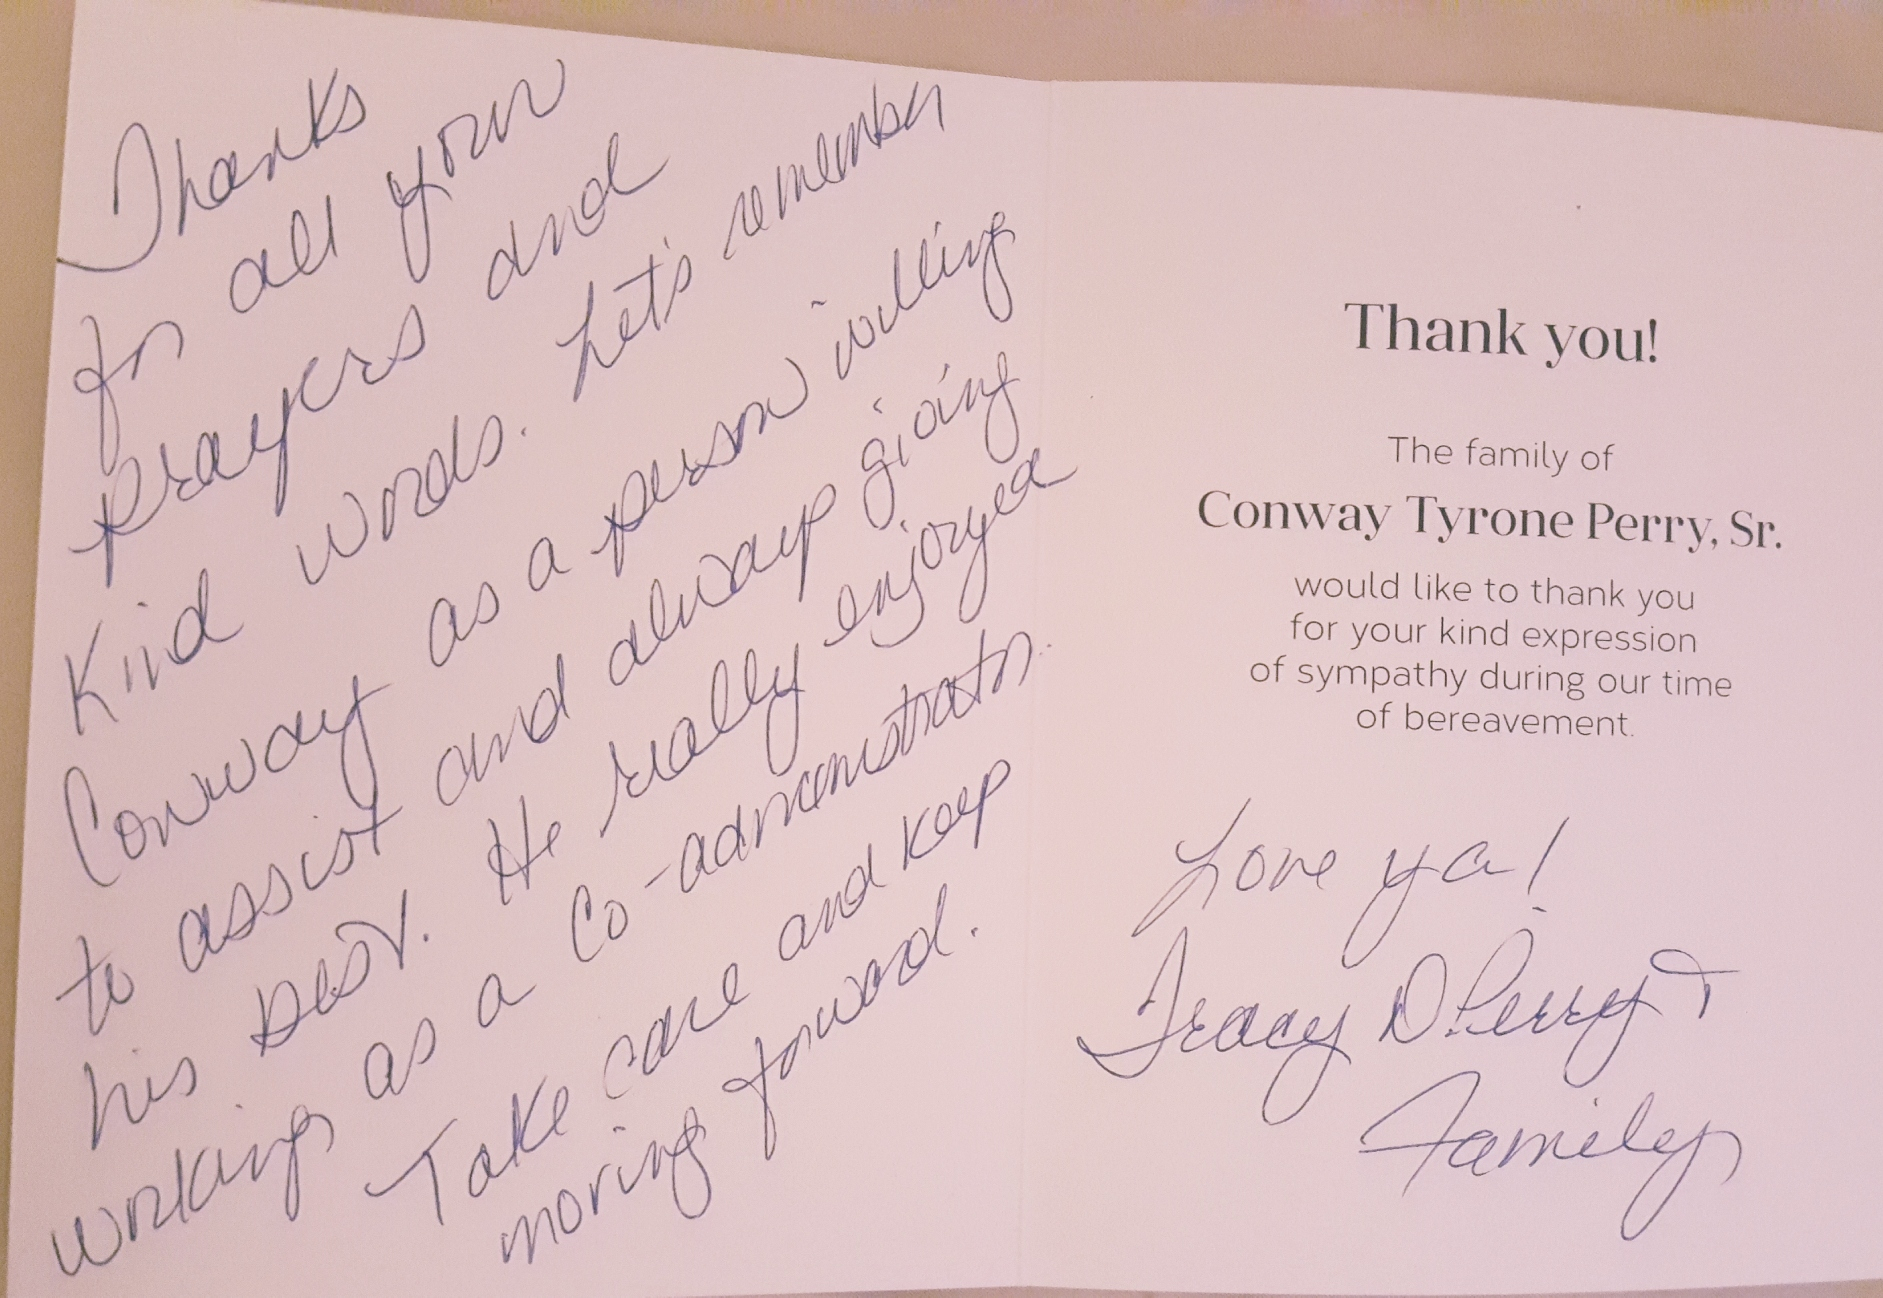 Thanks
for all your
prayers and
Kind words. Let's remember
Conway as a person willing
to assist and always giving
his best. He really enjoyed
working as a Co-administrator.
Take care and keep
moving forward.
Thank you!
The family of
Conway Tyrone Perry, Sr.
would like to thank you
for your kind expression
of sympathy during our time
of bereavement.
Love ya!
Tracy D. Perry &
Family